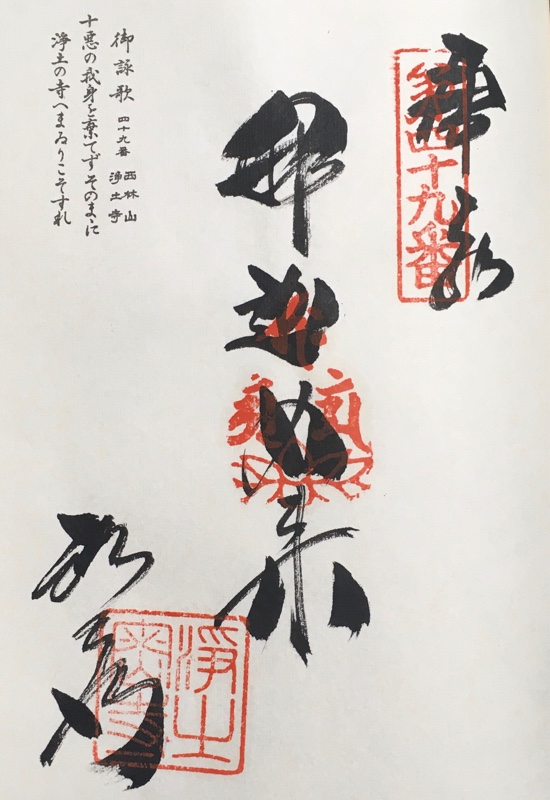 奉納
第四十九番
釈迦如来
浄土寺
淨土
御詠歌 四十九番 西林山 浄土寺
十悪の我身を棄てずそのまゝに
浄土の寺へまゐりこそすれ